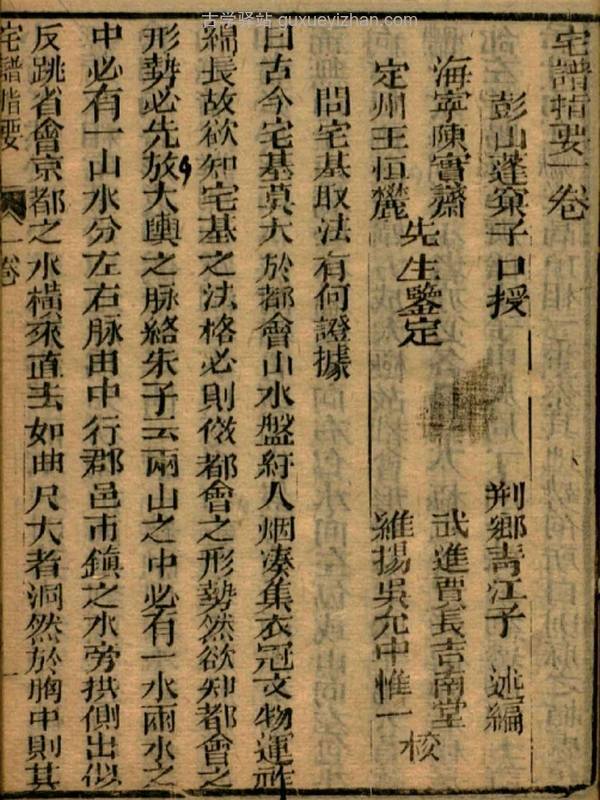 古学驿站 guxueyizhan.com
宅譜指要一卷
彭山蓬萊子口授
荆鄉青江子 述編
海寧陳實齋
定州王恒麓
先生鑒定
武進賈長吉南堂
維揚吳允中惟一
校
問宅基取法有何證據
曰古今宅基莫大於都會山水盤紆人烟湊集衣冠文物運祚
綿長故欲知宅基之法格必則倣都會之形勢然欲知都會之
形勢必先放大輿之脉絡朱子云兩山之中必有一水兩水之
中必有一山水分左右脉由中行郡邑市鎮之水旁拱側出似
反跳省會京都之水橫來直去如曲尺大者洞然於胸中則其
宅譜指要 一卷